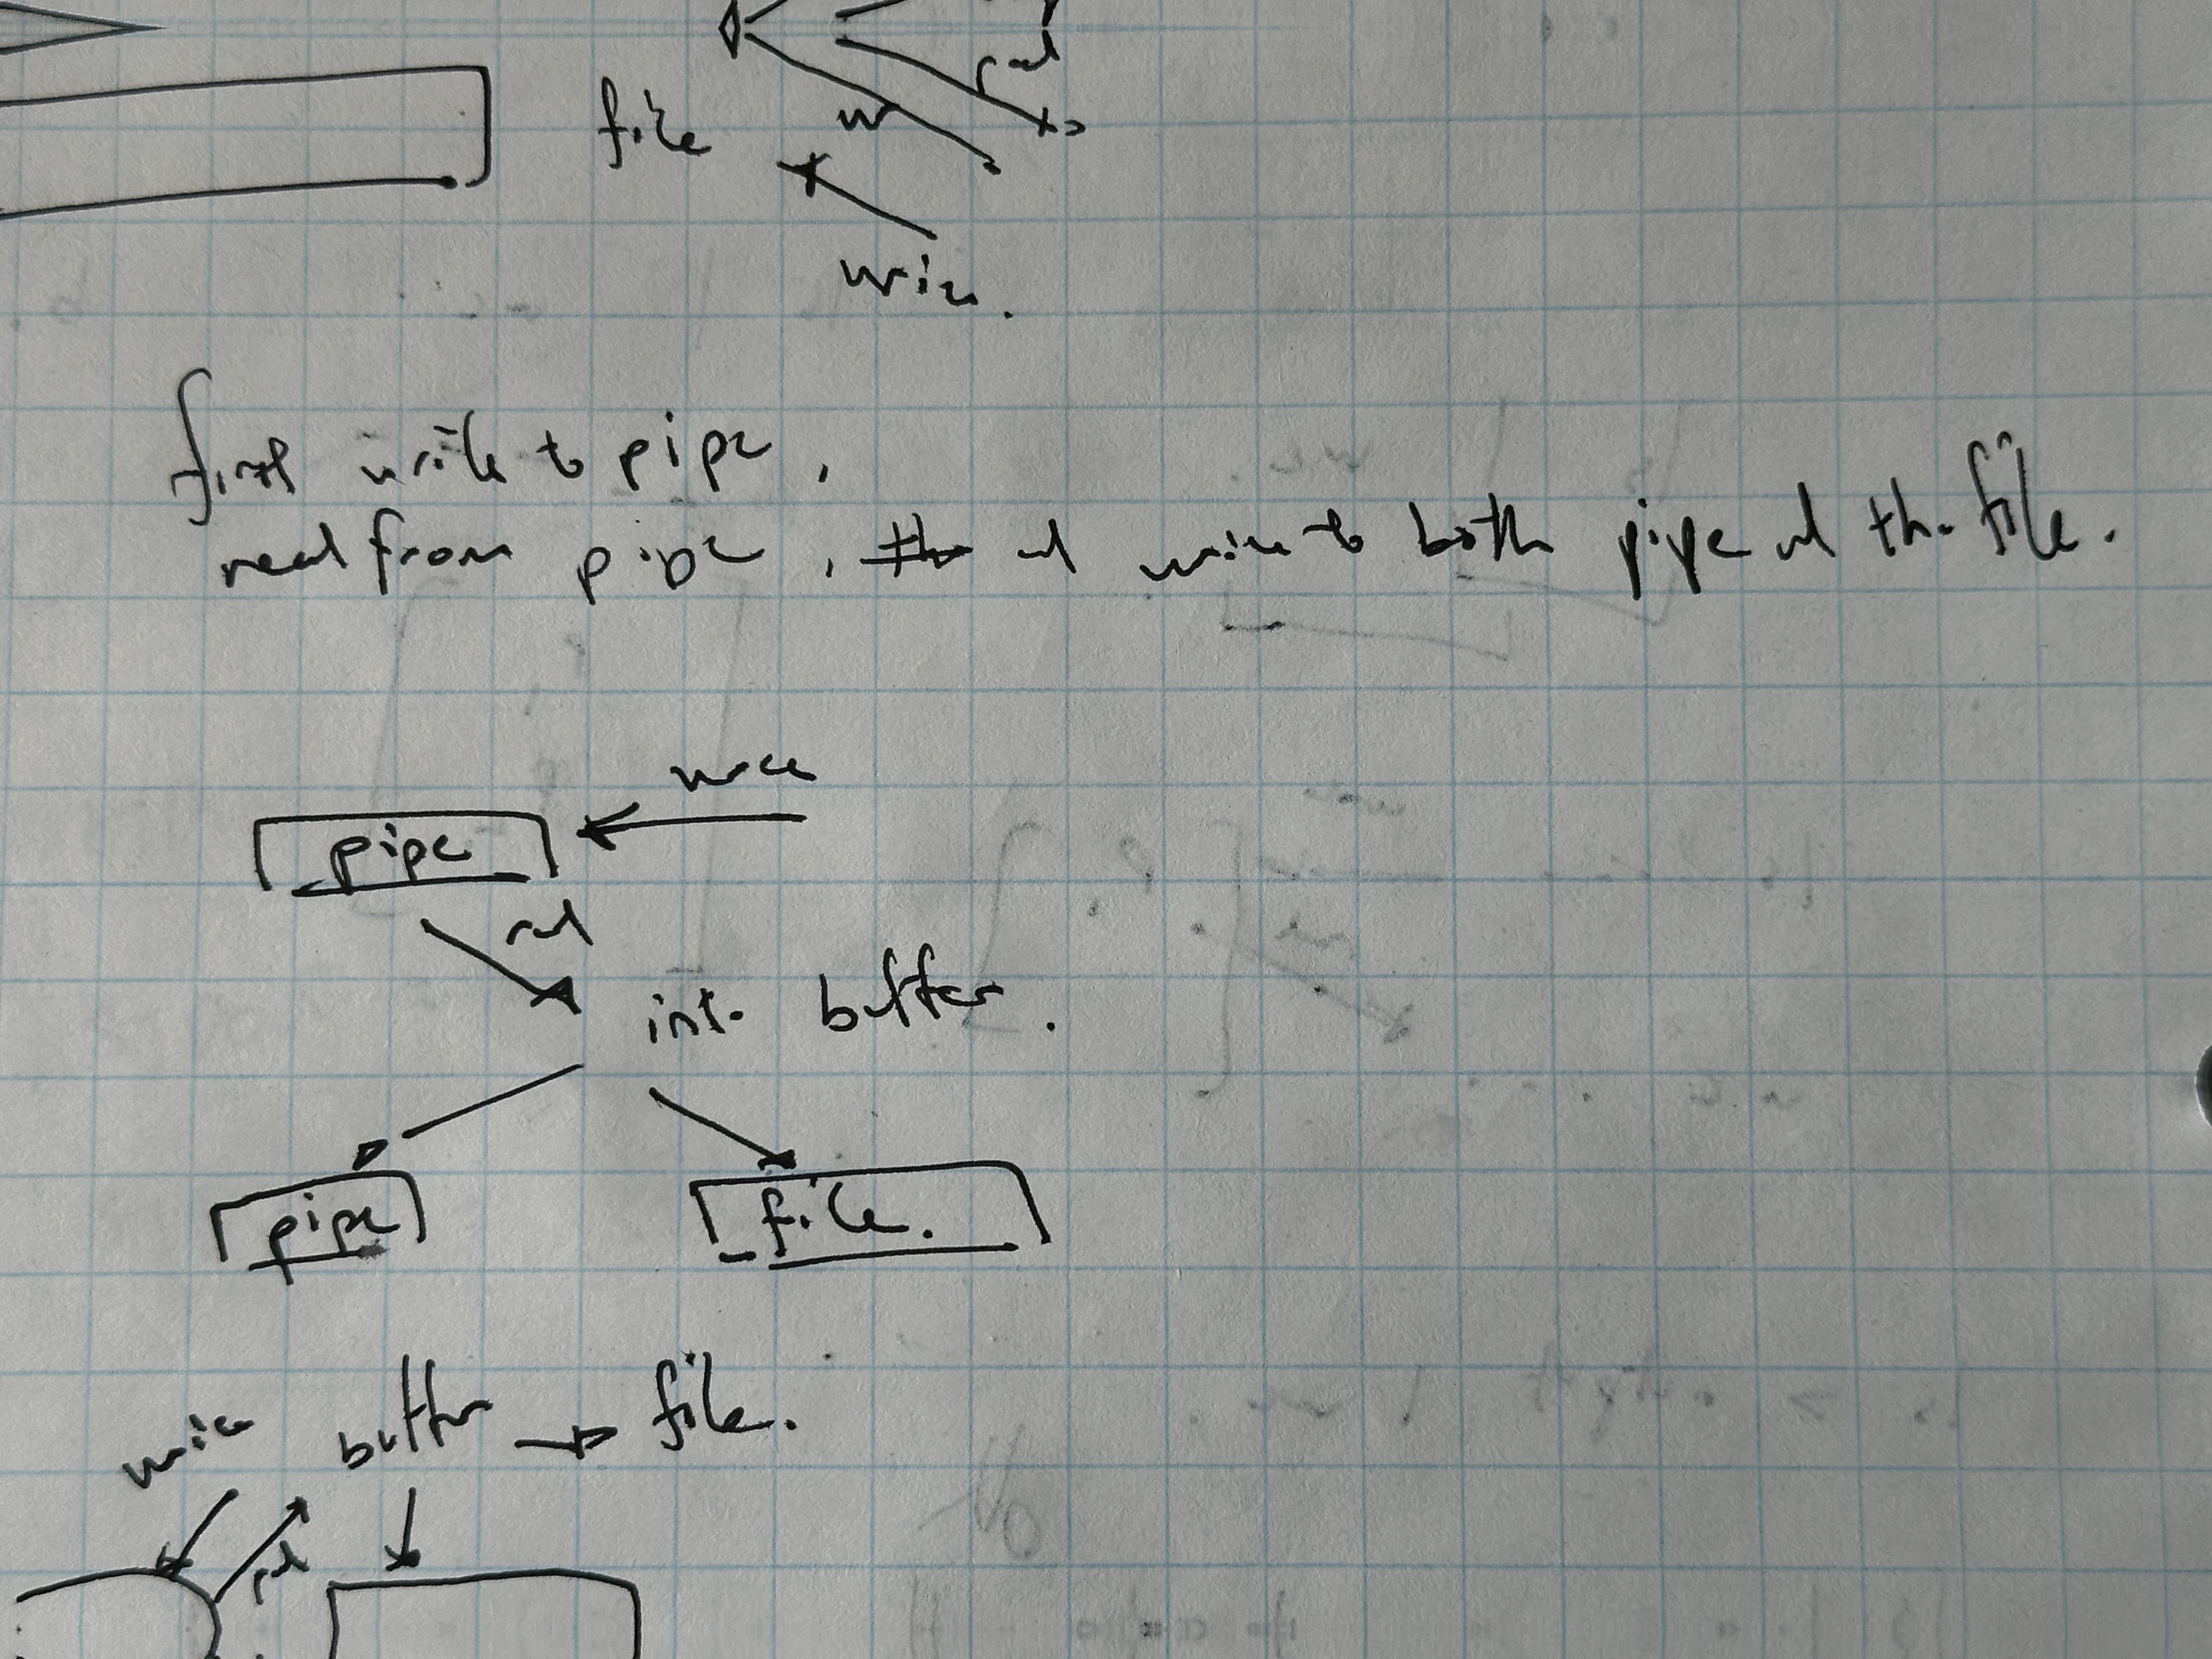 read
file w
write.
first write to pipe,
read from pipe, and write to both pipe and the file.
write
pipe
read
into buffer.
pipe file.
write buffer → file.
read